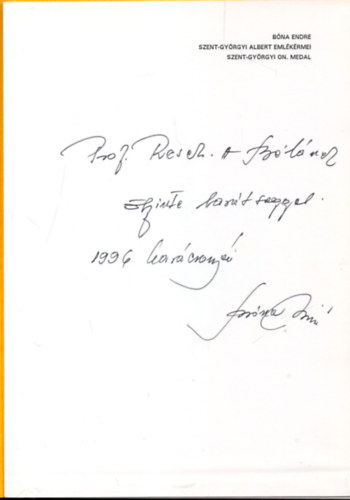 BÓNA ENDRE
SZENT-GYÖRGYI ALBERT EMLÉKÉRMEI
SZENT-GYÖRGYI ON. MEDAL
Prof. Resch. Bélának
őszinte barátsággal.
1996 karácsonyán